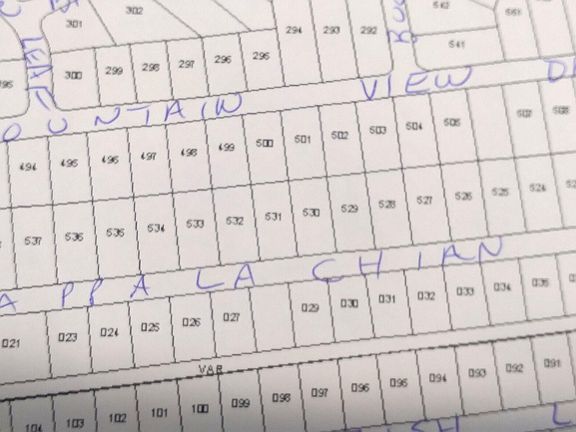 302 542 561
301 294 293 292 541
300 299 298 297 296 295
LEAF
OUNTAIN VIEW
494 495 496 497 498 499 500 501 502 503 504 505 507 508
537 536 535 534 533 532 531 530 529 528 527 526 525 524
APPALACHIAN
021 023 024 025 026 027 029 030 031 032 033 034 035
VAR
104 103 102 101 100 099 098 097 096 095 094 093 092 091